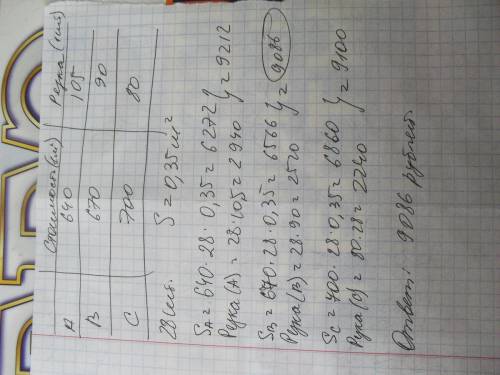 Стоимость(м²) Резка (см)
A 640 105
B 670 90
C 700 80
28 шт. S = 0,35 м²
S_A = 640·28·0,35 = 6272 } = 9212
Резка (A) = 28·10,5 = 2940
S_B = 670·28·0,35 = 6566 } = 9086
Резка (B) = 28·90 = 2520
S_C = 700·28·0,35 = 6860 } = 9100
Резка (C) = 80·28 = 2240
Ответ: 9086 рублей